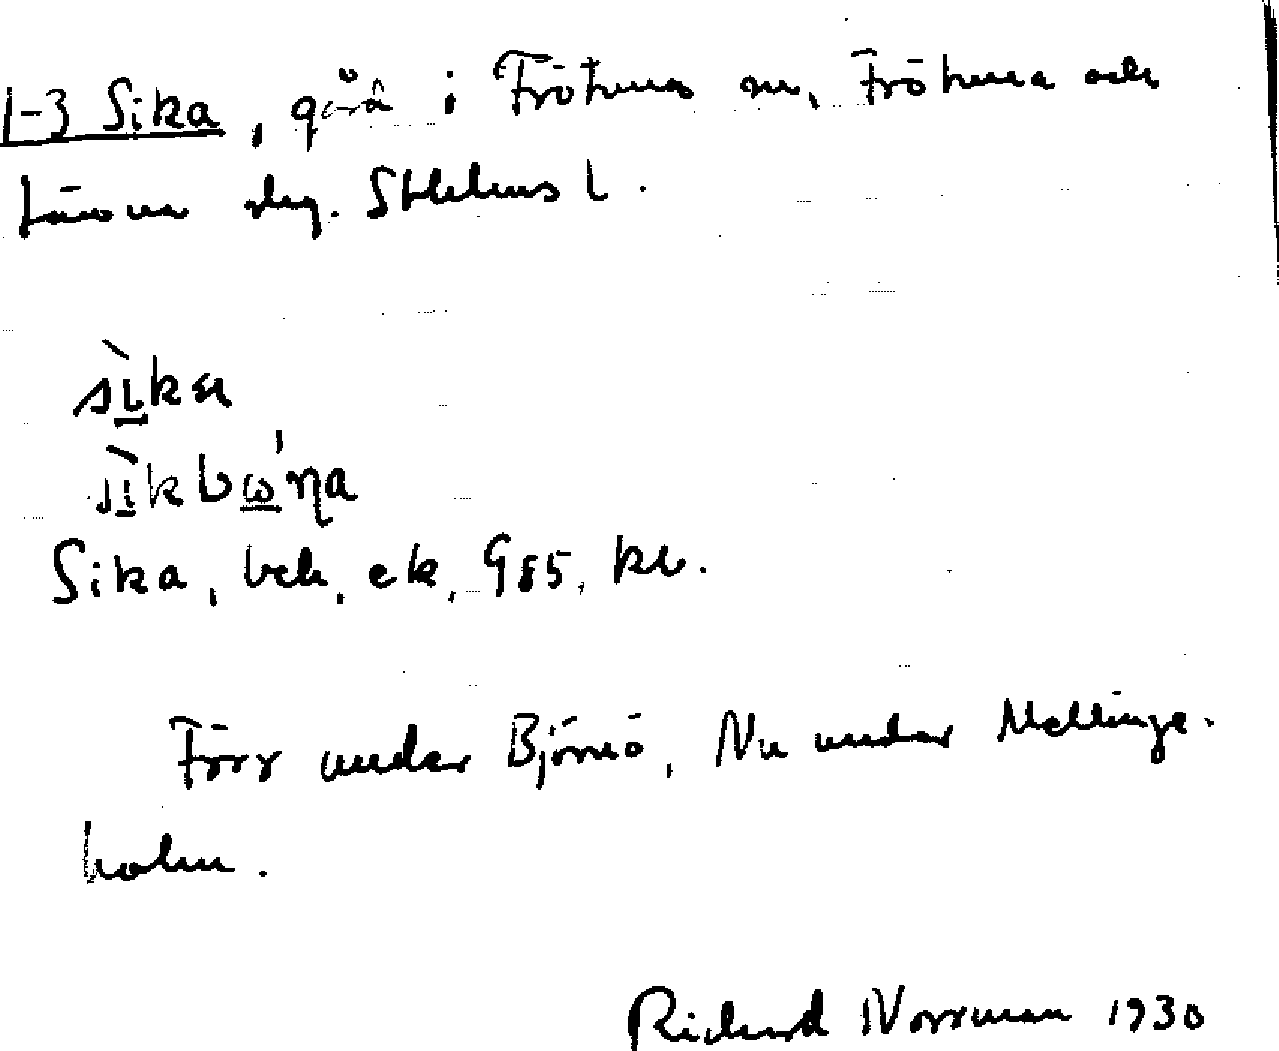 1-3 Sika, gård i Frötuna sn, Frötuna och
Länna skg. Sthlms l.
sìka
sìkbω'ŋa
Sika, bek, ek, G85, kl.
Förr under Björnö, Nu under Mellinge-
holm.
Richard Norrman 1930